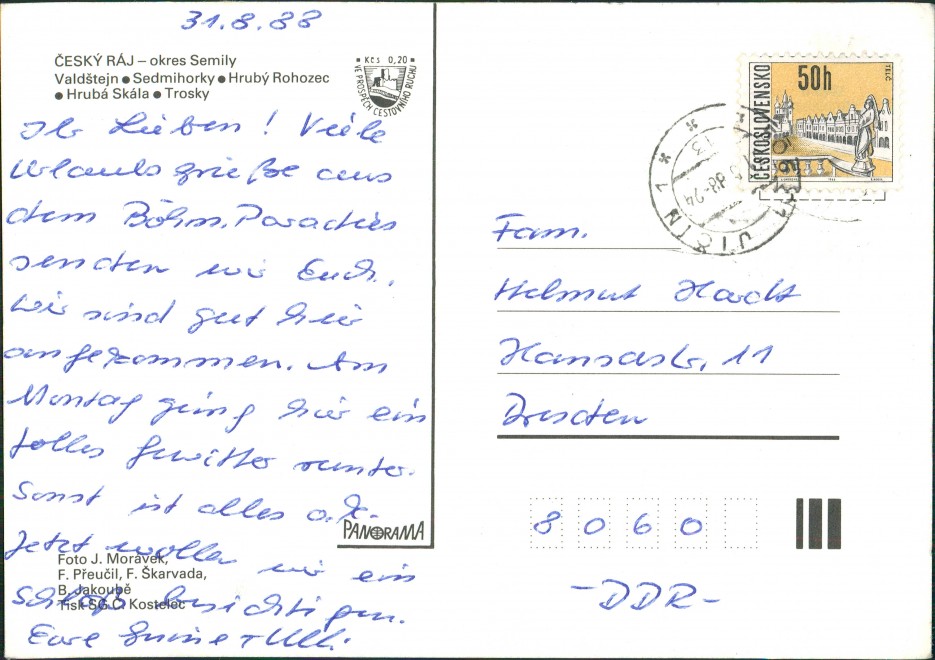 31.8.88
ČESKÝ RÁJ – okres Semily
Valdštejn ● Sedmihorky ● Hrubý Rohozec
● Hrubá Skála ● Trosky
Kčs 0,20
VE PROSPĚCH CESTOVNÍHO RUCHU
Ihr Lieben! Viele
Urlaubsgrüße aus
dem Böhm. Paradies
senden wir Euch.
Wir sind gut hier
angekommen. Am
Montag ging hier ein
tolles Gewitter runter.
Sonst ist alles o.K.
Jetzt wollen wir ein
Schloß besichtigen.
Eure + Ulli.
PANORAMA
Foto J. Morávek,
F. Přeučil, F. Škarvada,
B. Jakoubě
Tisk SG Č. Kostelec
ČESKOSLOVENSKO
50h
TELČ
JIČÍN 1
Fam.
Helmut Hardt
Hansastr. 11
Dresden
8060
-DDR-